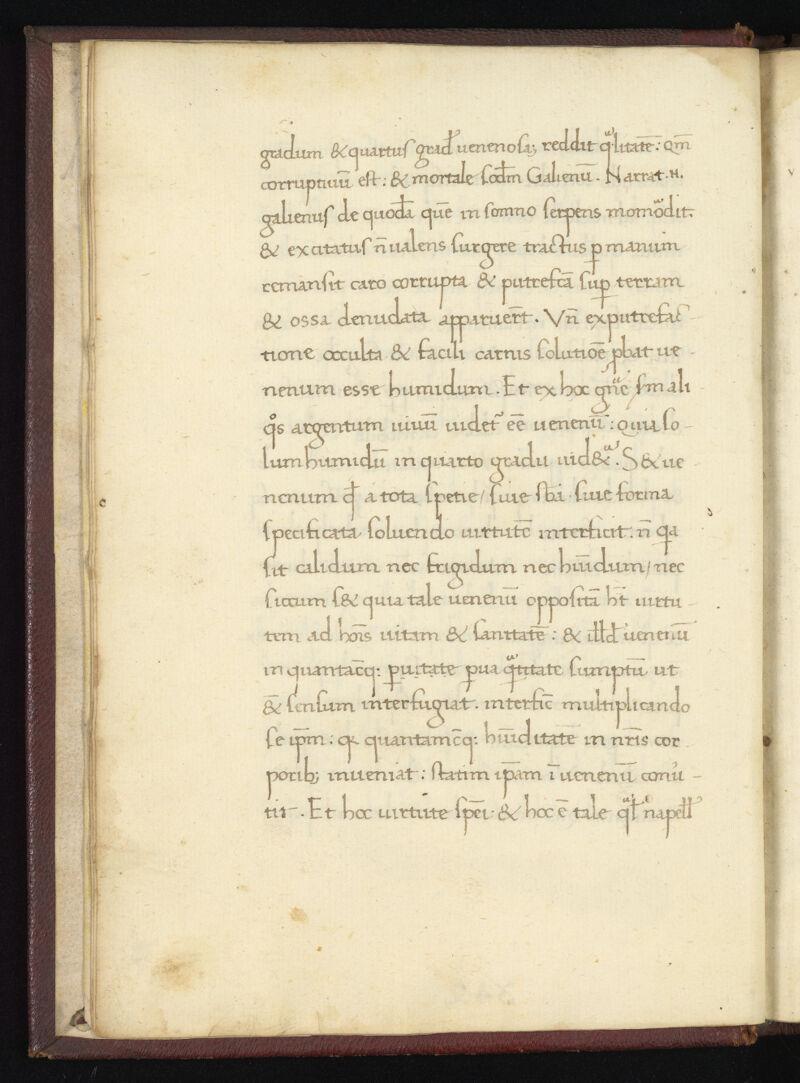 gradum & quartus grad' uenenosa; reddit q̄litatē: Qm̄
corruptiuū est: & mortale scdm̄ Galienū. Narrat .n.
galienus de quodā quē in somno serpens momordit.
& excitatus n̄ ualens surgere tractus p manum
remansit caro corrupta & putrefcā sup terram
& ossa denudata apparuert̄. Vn̄ ex putrefac
tione occulta & facili carnis solutiōe pbat ue
nenum esse humidum. Et ex hoc gn̄e sm ali
qos argentum uiuū uidet' eē uenenū: quia so
lum humidū in quarto gradu uid&'. S& ue
nenum qd a tota spetie/ siue sba siue forma
specificata/ soluendo uirtutē interficit: n̄ qa
sit calidum nec frigidum nec hūidum/ nec
siccum s& quia tale uenenū oppositā ht̄ uirtu
tem ad hoīs uitam & sanitatē: & illd' uenenū
in quantacq: puitate pua qtitate sumptū ut
& sensum interfugiat. interfic̄ multiplicando
se ipm̄: & quantamcq: hūiditatē in nrīs cor
porib; inueniat: statim ipam̄ ī uenenū conu
tit. Et hoc uirtute spēi: & hoc ē tale ql' napell'